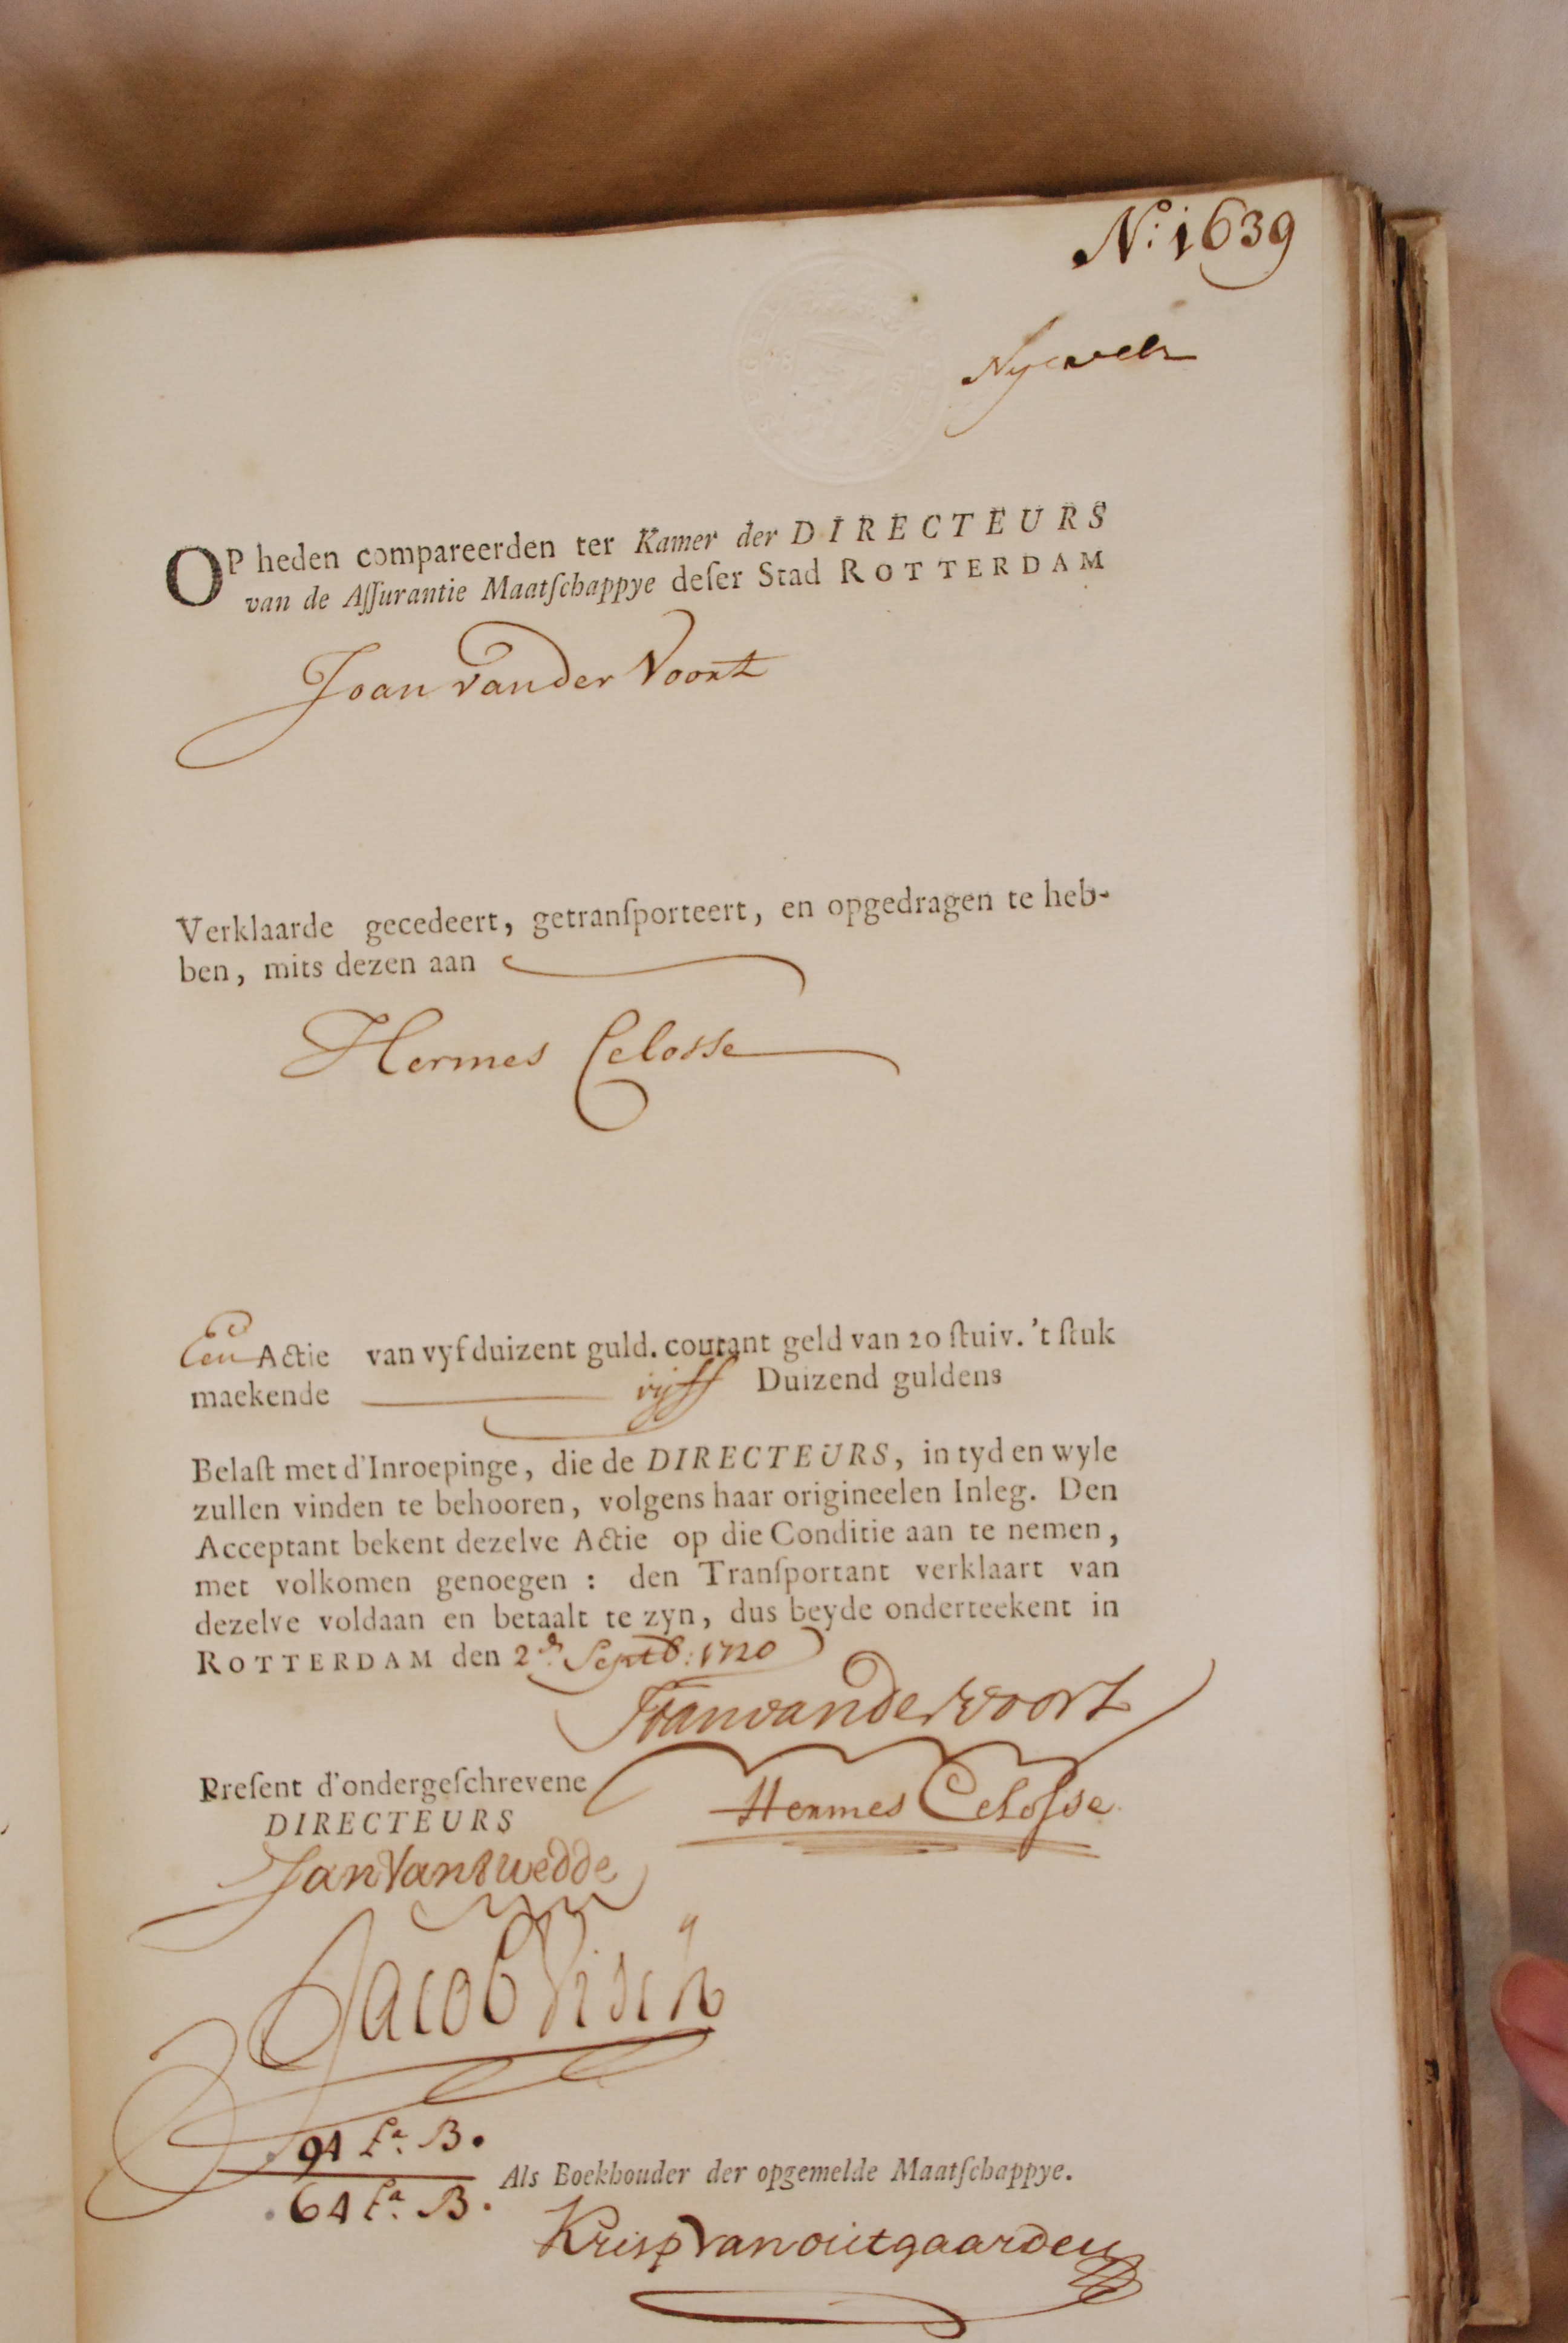 N:o 1639
Nyevelt
OP heden compareerden ter Kamer der DIRECTEURS
van de Aſſurantie Maatſchappye deſer Stad ROTTERDAM
Joan vander Voort
Verklaarde gecedeert, getranſporteert, en opgedragen te heb-
ben, mits dezen aan
Hermes Celosse
Een Actie van vyf duizent guld. courant geld van 20 ſtuiv. 't ſtuk
maekende vyff Duizend guldens
Belaſt met d'Inroepinge, die de DIRECTEURS, in tyd en wyle
zullen vinden te behooren, volgens haar origineelen Inleg. Den
Acceptant bekent dezelve Actie op die Conditie aan te nemen,
met volkomen genoegen : den Tranſportant verklaart van
dezelve voldaan en betaalt te zyn, dus beyde onderteekent in
ROTTERDAM den 2de Septb: 1720
Joan van der Voort
Preſent d'ondergeſchrevene
DIRECTEURS
Hermes Celoſse
Jan Vantwedde
Jacob Visch
94 La. B.
64 La. B.
Als Boekhouder der opgemelde Maatſchappye.
Krisp Van outgaarden